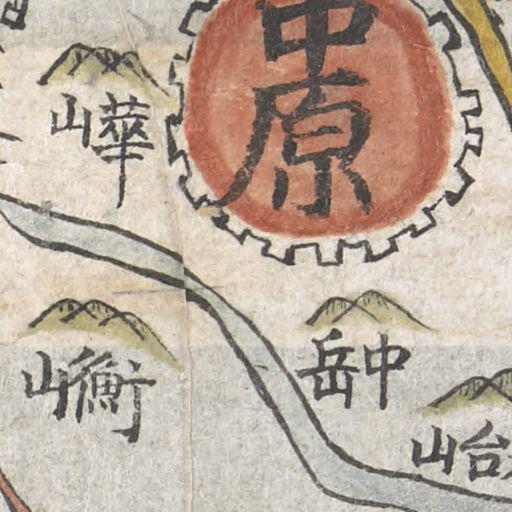 中原
華山
衡山
中岳
台山